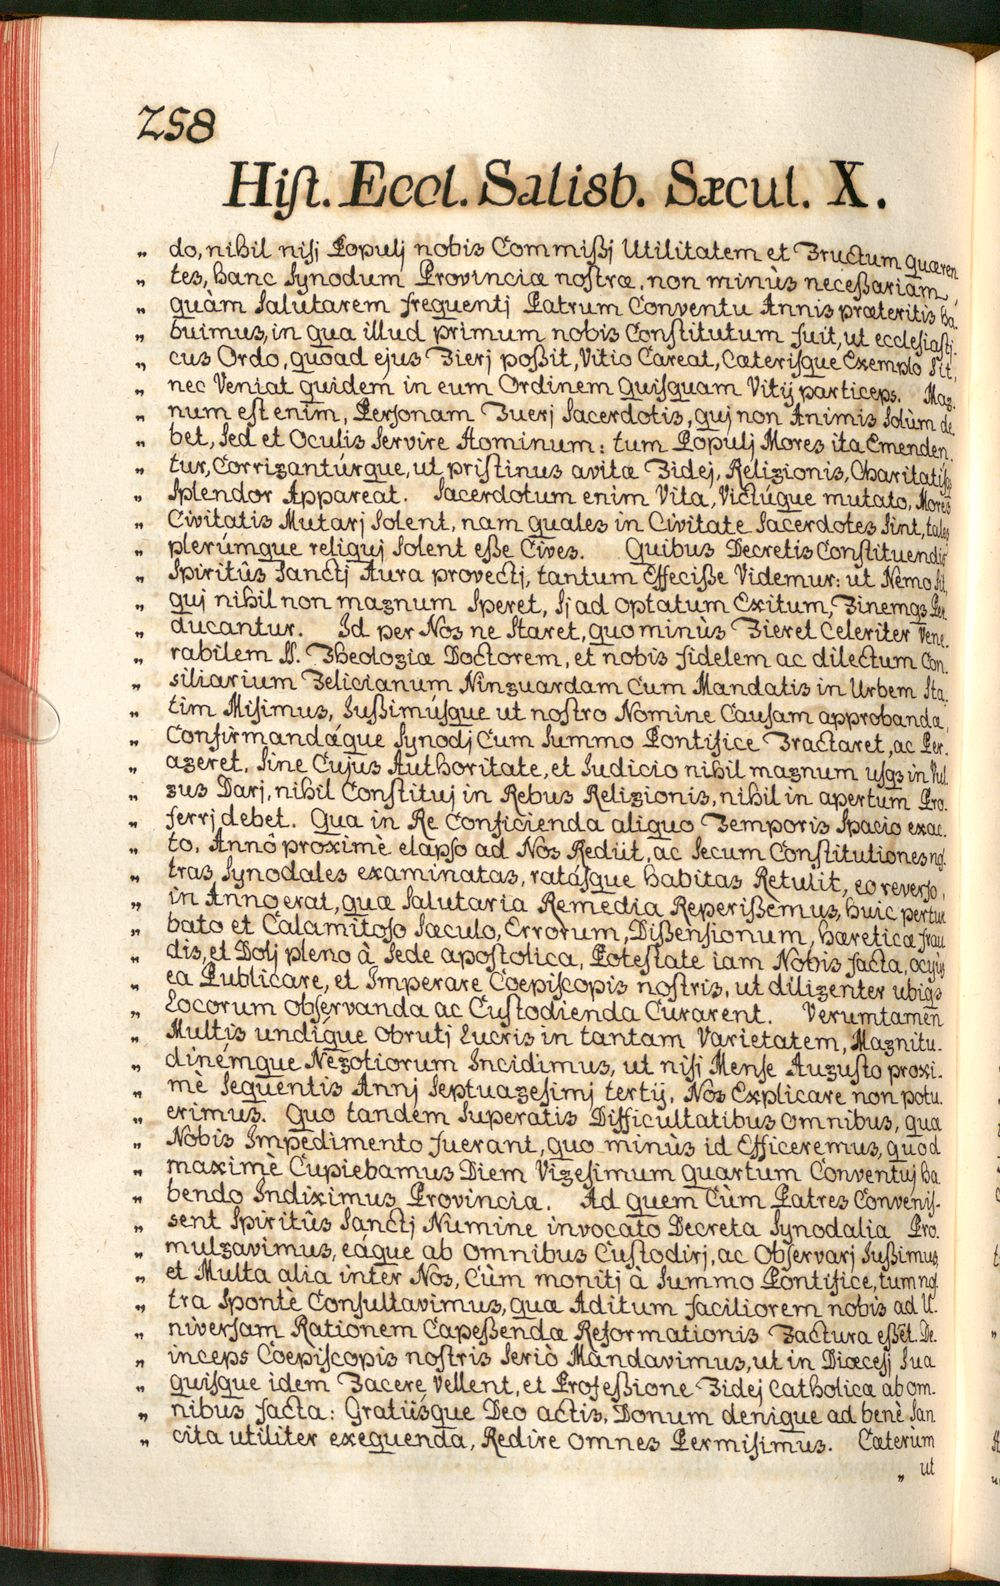 258
Hist. Eccl. Salisb. Sæcul. X.
„ do, nihil nisj Populj nobis Commißj Utilitatem et Fructum quæren
„ tes, hanc Synodum Provinciæ nostræ, non minùs neceßariam,
„ quàm Salutarem frequentj Patrum Conventu Annis præteritis ha-
„ buimus, in qua illud primum nobis Constitutum fuit, ut ecclesiastj-
„ cus Ordo, quoad ejus Fierj poßit, Vitio Careat, Cæterisque Exemplo Sit,
„ nec Veniat quidem in eum Ordinem quisquam Vitij particeps. Mag-
„ num est enim, Personam Tuerj Sacerdotis, quj non Animis Solùm de-
„ bet, Sed et Oculis Servire Hominum: tum Populj Mores ita Emenden-
„ tur, Corrigantúrque, ut pristinus avitæ Fidej, Religionis, Charitatisq3
„ Splendor Appareat. Sacerdotum enim Vita, Victúque mutato, Mores
„ Civitatis Mutarj Solent, nam quales in Civitate Sacerdotes Sint, tales
„ plerúmque reliquj Solent eße Cives. Quibus Decretis Constituendis
„ Spiritûs Sanctj Aura provectj, tantum Effeciße Videmur: ut Nemo Sit,
„ quj nihil non magnum Speret, Sj ad optatum Exitum, Finemq3 Per-
„ ducantur. Id per Nos ne Staret, quominùs Fieret Celeriter Vene-
„ rabilem SS. Theologiæ Doctorem, et nobis fidelem ac dilectum Con-
„ siliarium Felicianum Ninguardam Cum Mandatis in Urbem Sta-
„ tim Misimus, Jußimúsque ut nostro Nomine Causam approbandæ,
„ Confirmandǽque Synodj Cum Summo Pontifice Tractaret, ac Per-
„ ageret, Sine Cujus Authoritate, et Judicio nihil magnum usq3 in Vul-
„ gus Darj, nihil Constituj in Rebus Religionis, nihil in apertum Pro-
„ ferrj debet. Qua in Re Conficienda aliquo Temporis Spacio exac-
„ to, Annô proximè elapso ad Nos Redijt, ac Secum Constitutiones nos-
„ tras Synodales examinatas, ratásque habitas Retulit, eo reverso,
„ in Anno erat, quæ Salutaria Remedia Reperißemus, huic pertur
„ bato et Calamitoso Sæculo, Errorum, Dißensionum, hæreticæ frau
„ dis, et Dolj pleno à Sede apostolica, Potestate iam Nobis facta, ocyùs
„ ea Publicare, et Imperare Coepiscopis nostris, ut diligenter ubiq3
„ Locorum observanda ac Custodienda Curarent. Verumtamen
„ Multis undique obrutj Lucris in tantam Varietatem, Magnitu-
„ dinemque Negotiorum Incidimus, ut nisi Mense Augusto proxi-
„ me Sequentis Annj Septuagesimj tertij, Nos Explicare non potu-
„ erimus. Quo tandem Superatis Difficultatibus omnibus, quæ
„ Nobis Impedimento fuerant, quo minùs id Efficeremus, quod
„ maximè Cupiebamus Diem Vigesimum quartum Conventuj ha-
„ bendo Indiximus Provinciæ. Ad quem Cùm Patres Convenis-
„ sent Spiritûs Sanctj Numine invocato Decreta Synodalia Pro-
„ mulgavimus, eáque ab omnibus Custodirj, ac Observarj Jußimus,
„ et Multa alia inter Nos, Cùm monitj à Summo Pontifice, tum nos-
„ tra Spontè Consultavimus, quæ Aditum faciliorem nobis ad U-
„ niversam Rationem Capeßendæ Reformationis Factura eßẽt. De-
„ inceps Coepiscopis nostris Seriò Mandavimus, ut in Diœcesj Sua
„ quisque idem Facere Vellent, et Profeßione Fidej Catholicæ ab om-
„ nibus facta: Gratiisque Deo actis, Donum denique ad benè San
„ cita utiliter exequenda, Redire omnes Permisimus. Cæterùm
„ ut